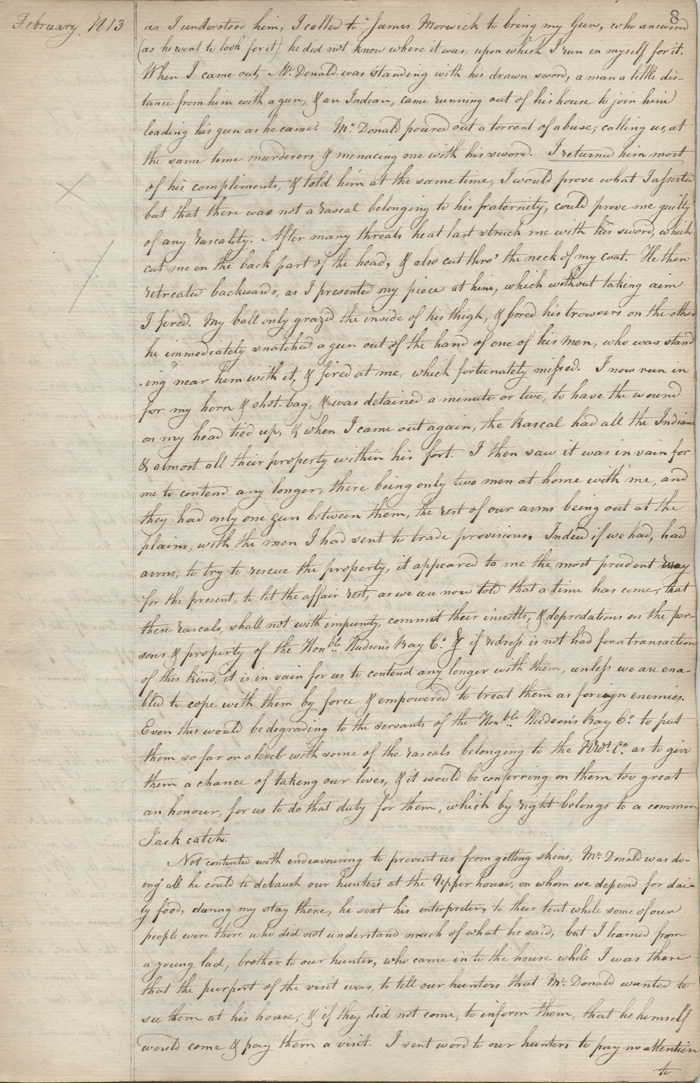 8
February 1813
as I understood him, I called to James Morwick to bring my Gun, who answered
(as he went to look for it) he did not know where it was, upon which I run in myself for it.
When I came out, Mr. Donald was standing with his drawn sword, a man a little dis-
tance from him with a gun, & an Indian, came running out of his house to join him
loading his gun as he came. Mr. Donald poured out a torrent of abuse, calling us, at
the same time murderers & menacing me with his sword. I returned him most
of his compliments, & told him at the same time, I would prove what I asserted
but that there was not a rascal belonging to his fraternity, could prove me guilty
of any rascality. After many threats he at last struck me with his sword, which
cut me on the back part of the head, & also cut thro' the neck of my coat. He then
retreated backwards, as I presented my piece at him, which without taking aim
I fired. My ball only grazed the inside of his thigh, & bored his trowsers on the other
he immediately snatched a gun out of the hand of one of his men, who was stand
-ing near him with it, & fired at me, which fortunately missed. I now run in
for my horn & shot bag, & was detained a minute or two, to have the wound
on my head tied up, & when I came out again, the Rascal had all the Indians
& almost all their property within his fort. I then saw it was in vain for
me to contend any longer, there being only two men at home with me, and
they had only one gun between them, the rest of our arms being out at the
plains, with the men I had sent to trade provisions. Indeed if we had, had
arms, to try to rescue the property, it appeared to me the most prudent way
for the present, to let the affair rest, as we are now told that a time has come, that
these rascals, shall not with impunity, commit their insults, & depredations on the per-
sons & property of the Honble Hudsons Bay Co. & if redress is not had for a transaction
of this kind, it is in vain for us to contend any longer with them, unless we are ena-
bled to cope with them by force & empowered to treat them as foreign enemies.
Even this would be degrading to the servants of the Honble Hudson's Bay Co. to put
them so far on a level with some of the rascals belonging to the NWt. Co. as to give
them a chance of taking our lives, & it would be conferring on them too great
an honour, for us to do that duty for them, which by right belongs to a common
Jack catch.
Not contented with endeavouring to prevent us from getting skins, Mr. Donald was do-
ing all he could to debauch our hunters at the Upper house, on whom we depend for dai-
ly food, during my stay there, he sent his interpreter, to their tent while some of our
people were there who did not understand much of what he said, but I learned from
a young lad, brother to our hunter, who came in to the house while I was there
that the purport of the visit was, to tell our hunters that Mr. Donald wanted to
see them at his house, & if they did not come, to inform them, that he himself
would come & pay them a visit. I sent word to our hunters to pay no attention
to